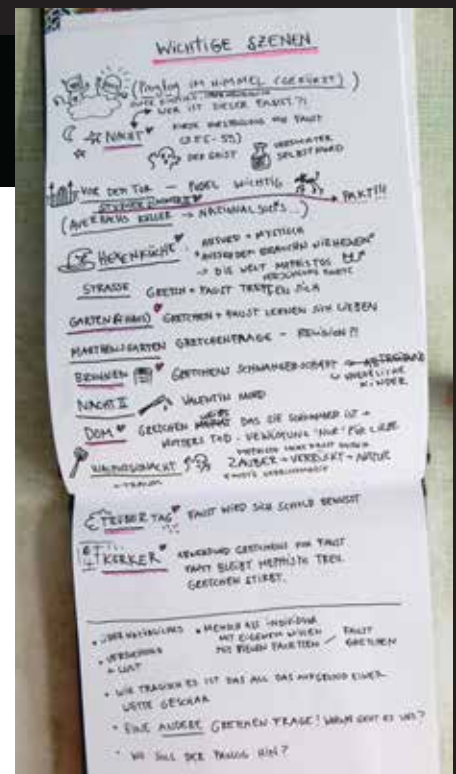 WICHTIGE SZENEN
(Prolog IM HIMMEL (GEKÜRZT))
WER IST DIESER FAUST?!
NACHT KURZE VORSTELLUNG VON FAUST
DER GEIST
VERSUCHTER
SELBSTMORD
VOR DEM TOR - PUDEL WICHTIG
STUDIERZIMMER PAKT!!!
(AUERBACHS KELLER → NATIONAL
HEXENKÜCHE ABSURD + MYSTISCH
AUSSERDEM BRAUCHN WIR HEXEN
→ DIE WELT MEPHISTOS
STRASSE GRETCH + FAUST TREFFEN SICH
GARTEN (HAUS) GRETCHEN + FAUST LERNEN SICH LIEBEN
MARTHENS GARTEN GRETCHENFRAGE - RELIGION?!
BRUNNEN GRETCHENS SCHWANGERSCHAFT
UNEHELICHE
KINDER
NACHT II VALENTIN MORD
DOM GRETCHEN WEIß DAS SIE SCHWANGER IST
MUTTERS TOD "NUR" FÜR LIEBE
WALPURGISNACHT
ZAUBER + VERRÜCKT + NATUR
- TRAUM
TRÜBER TAG FAUST WIRD SICH SCHULD BEWUSST
KERKER GRETCHENS VON FAUST
FAUST BLEIBT MEPHISTO TREU
GRETCHEN STIRBT.
• MENSCH ALS INDIVIDUUM
• VERSUCHUNG MIT EIGENEM WILLEN FAUST
+ LUST MIT VIELEN FACETTEN / GRETCHEN
• WIE TRAGISCH ES IST DAS ALL DAS AUFGRUND EINER
WETTE GESCHAH
• EINE ANDERE GRETCHEN FRAGE! WORUM GEHT ES UNS?
• WO SOLL DER HIN?